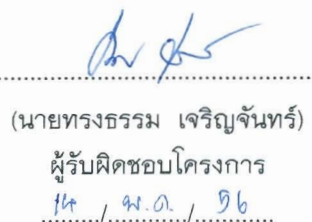 (นายทรงธรรม เจริญจันทร์)
ผู้รับผิดชอบโครงการ
14 / พ.ค. / 56